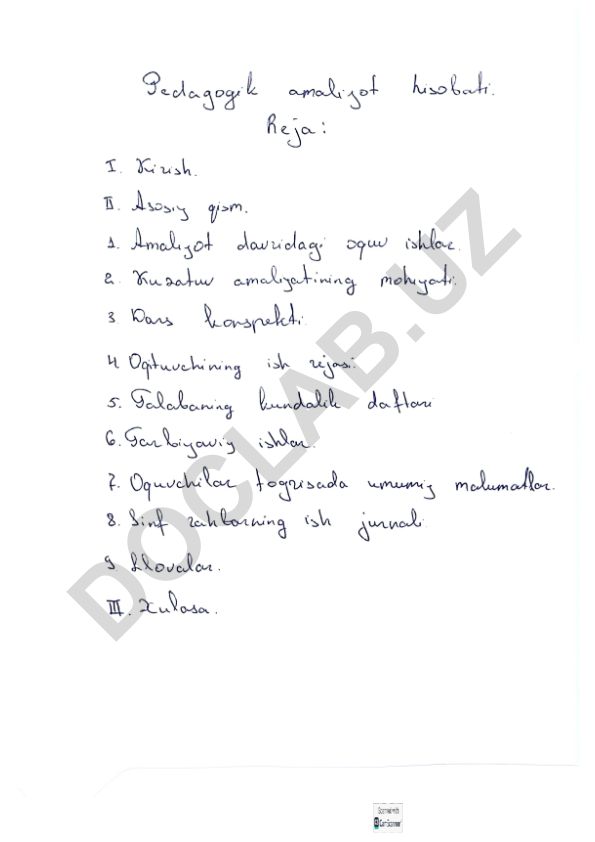 Pedagogik amaliyot hisobati.
Reja:
I. Kirish.
II. Asosiy qism.
1. Amaliyot davridagi oquv ishlar.
2. Kuzatuv amaliyatining mohiyati.
3 Dars konspekti.
4. Oqituvchining ish rejasi.
5. Talabaning kundalik daftari
6. Tarbiyaviy ishlar.
7. Oquvchilar togrisada umumiy malumatlar.
8. Sinf rahbarning ish jurnali.
9. Ilovalar.
III. Xulosa.
DOCLAB.UZ
Scanned with
CamScanner